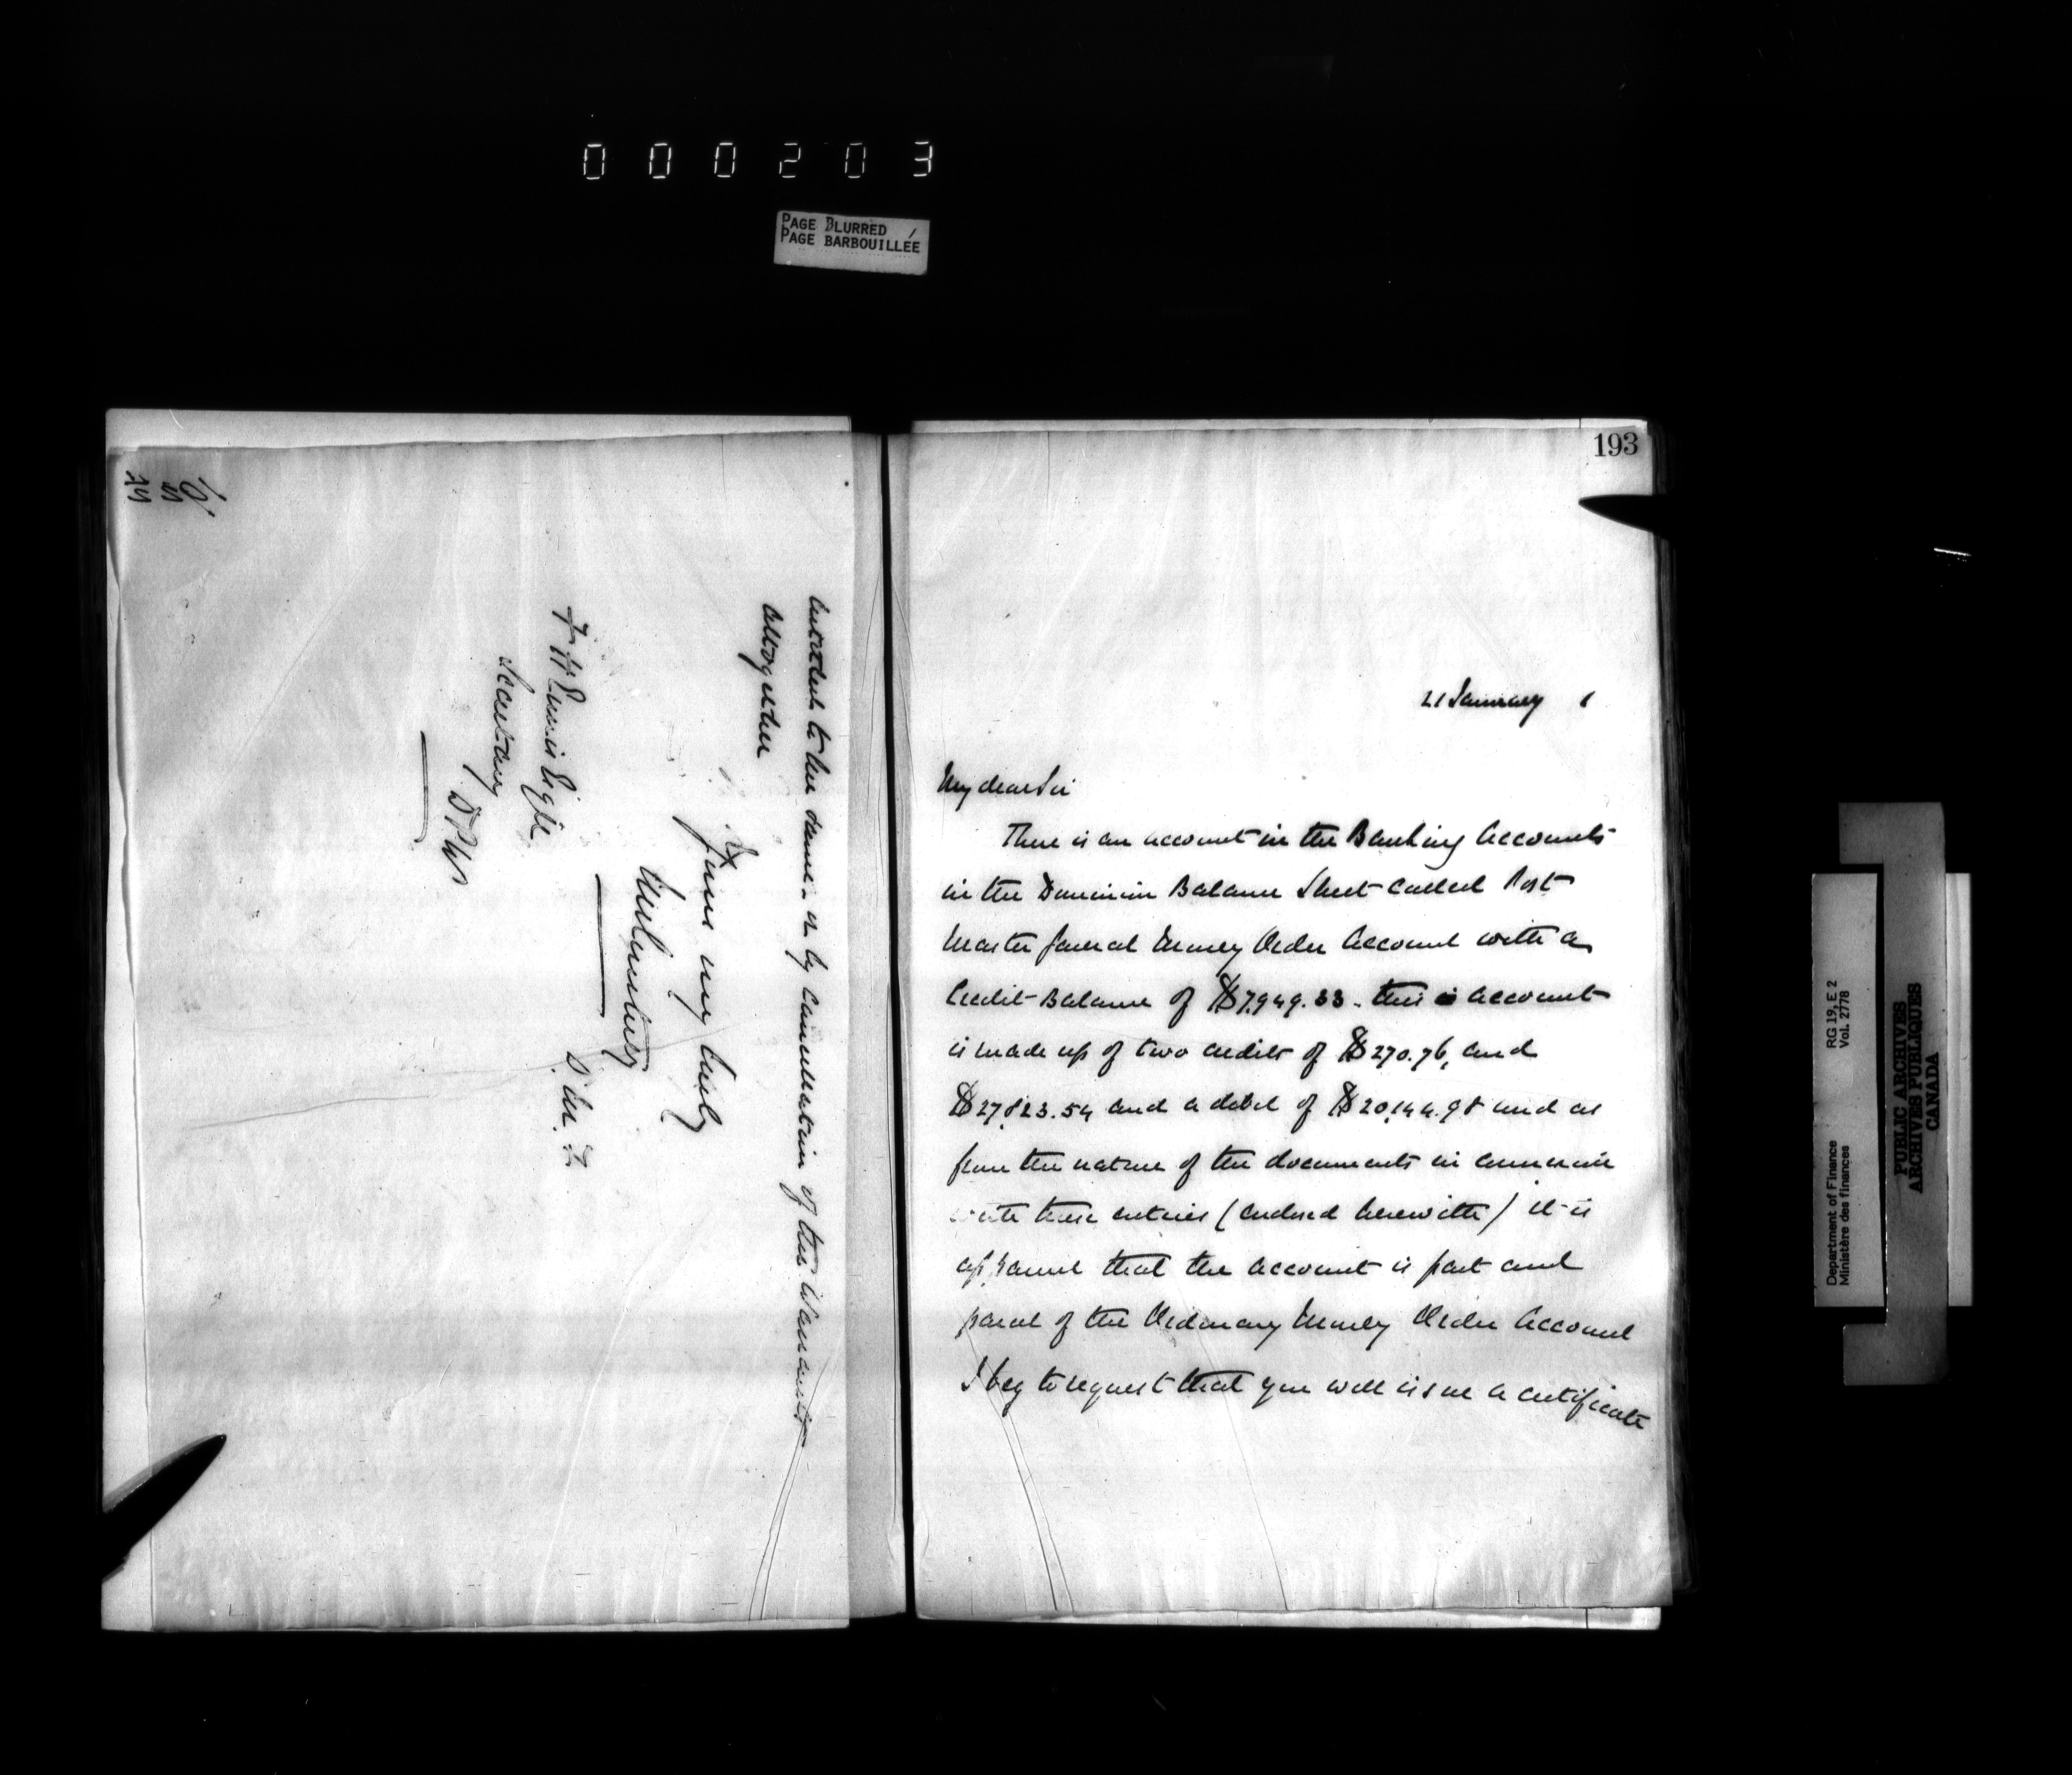 000203
PAGE BLURRED
PAGE BARBOUILLÉE
intended to have done - or by cancellation of the Warrants
altogether
Yours very truly
JMCourtney
D. M. F.
F H Ennis Esqre
Secretary
D P W
193
21 January 1
My dear Sir
There is an account in the Banking Accounts
in the Dominion Balance Sheet called Post
Master General Money Order Account with a
Credit Balance of $7,949.33 - this is account
is made up of two credits of $270.76, and
$27,823.54 and a debit of $20,144.98 and as
from the nature of the documents in connexion
with these entries (enclosed herewith) it is
apparent that the account is part and
parcel of the Ordinary Money Order Account
I beg to request that you will issue a certificate
RG 19, E 2
Vol. 2778
Department of Finance
Ministère des finances
PUBLIC ARCHIVES
ARCHIVES PUBLIQUES
CANADA